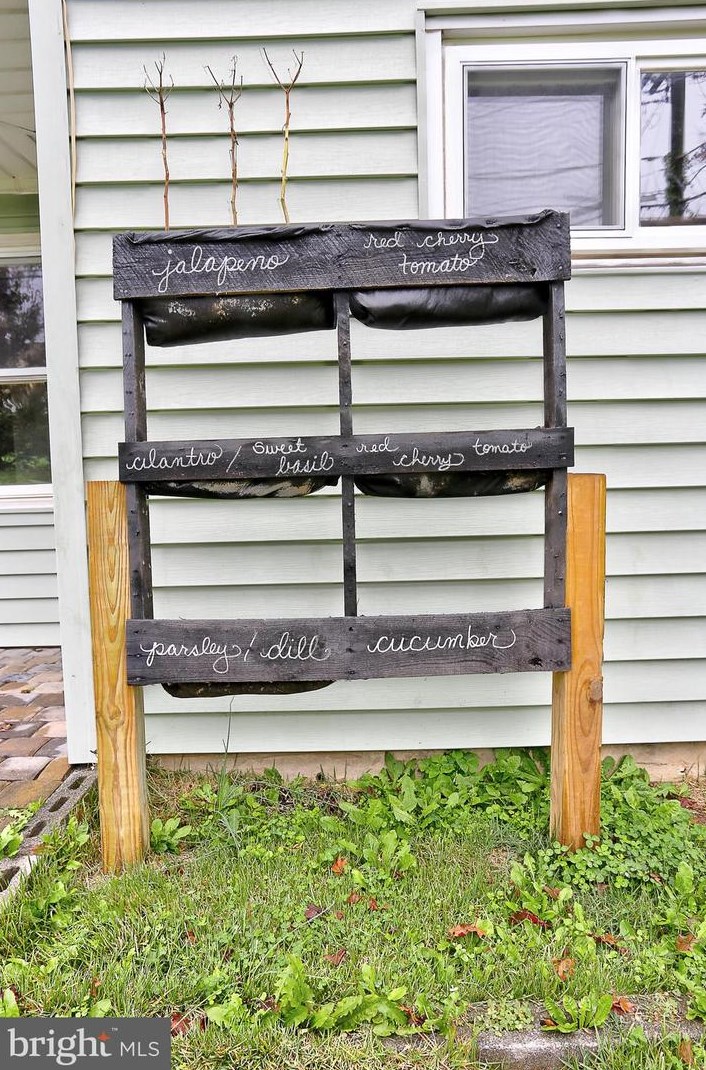 jalapeno
red cherry
tomato
cilantro / sweet basil
red cherry tomato
parsley / dill
cucumber
bright MLS